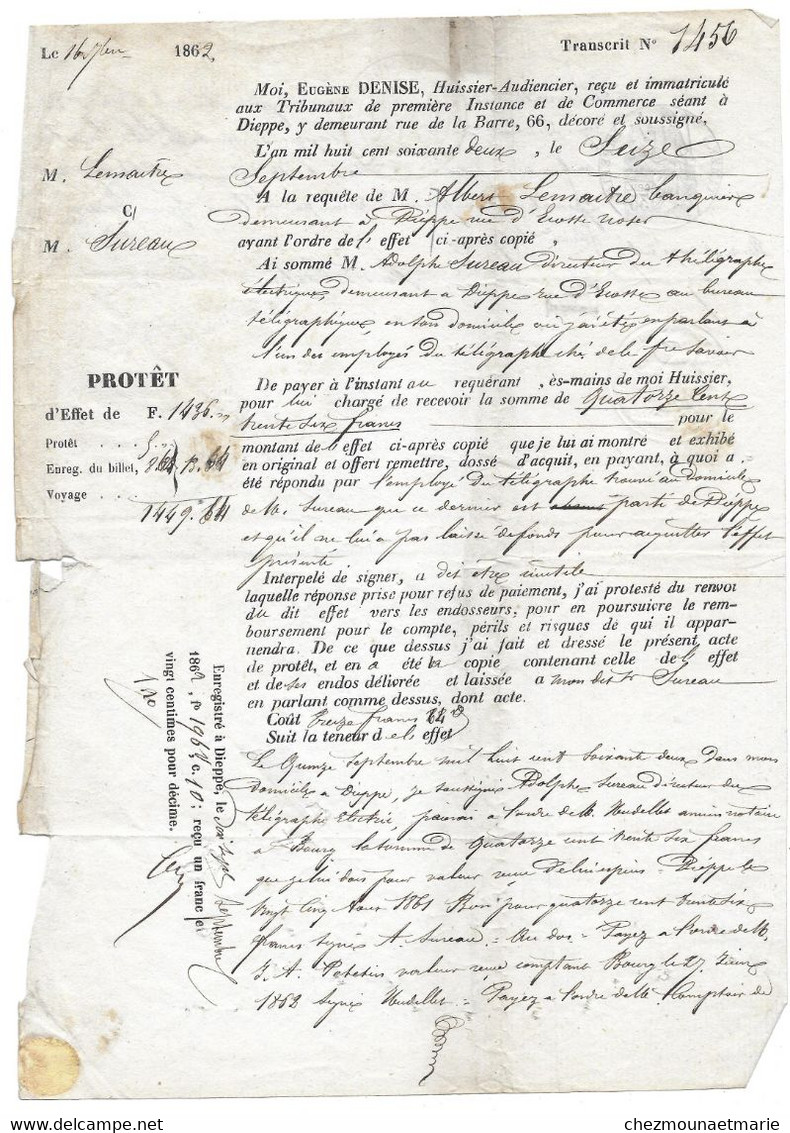 Le 16 7bre 1862
Transcrit N° 1456
Moi, EUGÈNE DENISE, Huissier-Audiencier, reçu et immatriculé
aux Tribunaux de première Instance et de Commerce séant à
Dieppe, y demeurant rue de la Barre, 66, décoré et soussigné,
L'an mil huit cent soixante deux, le Seize
Septembre
A la requête de M. Albert Lemaitre banquier
demeurant à Dieppe rue d'Ecosse
ayant l'ordre de l' effet ci-après copié,
Ai sommé M. Adolphe Sureau directeur du thélégraphe
électrique, demeurant à Dieppe rue d'Ecosse au bureau
télégraphique, en son domicile où j'ai été en parlant à
l'un des employés du télégraphe
M. Lemaitre
C/
M. Sureau
PROTÊT
d'Effet de F. 1436 "
Protêt . . . 5 "
Enreg. du billet, 8 64 13.64
Voyage . . .
1449.64
De payer à l'instant au requérant, ès-mains de moi Huissier,
pour lui chargé de recevoir la somme de Quatorze Cent
trente six francs pour le
montant de l'effet ci-après copié que je lui ai montré et exhibé
en original et offert remettre, dossé d'acquit, en payant, à quoi a
été répondu par l'employé du télégraphe trouvé au domicile
de M. Sureau que ce dernier est parti de Dieppe
et qu'il ne lui a pas laissé de fonds pour acquitter l'effet
présenté
Interpelé de signer, a dit être inutile
laquelle réponse prise pour refus de paiement, j'ai protesté du renvoi
du dit effet vers les endosseurs, pour en poursuivre le rem-
boursement pour le compte, périls et risques de qui il appar-
nendra. De ce que dessus j'ai fait et dressé le présent acte
de protêt, et en a été la copie contenant celle de l' effet
et de ses endos délivrée et laissée a mon dit Sr Sureau
en parlant comme dessus, dont acte.
Coût treize francs 64 c
Suit la teneur d el effet
Le Quinze Septembre mil huit cent soixante deux dans mon
domicile à Dieppe, je soussigné Adolphe Sureau directeur du
télégraphe Electric paierai à l'ordre de M. Nudellet ancien notaire
à Bourg la somme de Quatorze cent trente six francs
que je lui dois pour valeur reçue Dieppe le
vingt cinq Aout 1861 Bon pour quatorze cent trente six
francs signé A. Sureau = Au dos = Payez à l'ordre de M.
J. A. Petetin valeur reçue comptant Bourg le 27
1862 Signé Nudellet = Payez à l'ordre de M Comptoir de
Enregistré à Dieppe, le Dix Sept Septembre
1862, f° 196 v° c. 10; reçu un franc et
vingt centimes pour décime.
1.20
chezmounaetmarie.com